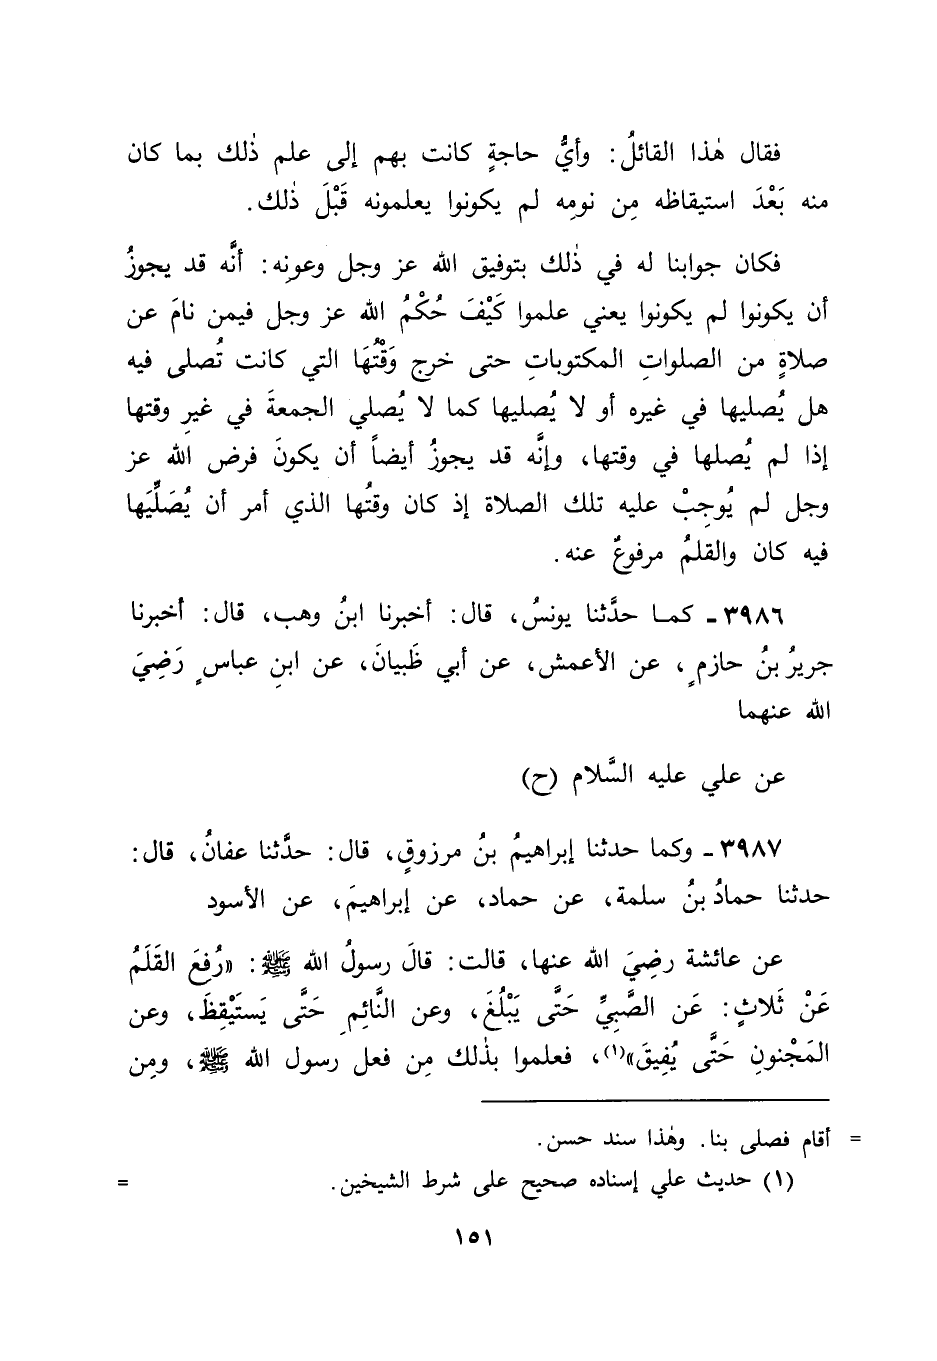 فقال هٰذا القائلُ: وأيُّ حاجةٍ كانت بهم إلى علم ذٰلك بما كان
منه بَعْدَ استيقاظه مِن نومِه لم يكونوا يعلمونه قَبْلَ ذٰلك.
فكان جوابنا له في ذٰلك بتوفيق الله عز وجل وعونِه: أنَّه قد يجوزُ
أن يكونوا لم يكونوا يعني علموا كَيْفَ حُكْمُ الله عز وجل فيمن نامَ عن
صلاةٍ من الصلواتِ المكتوباتِ حتى خرج وَقْتُهَا التي كانت تُصلى فيه
هل يُصليها في غيره أو لا يُصليها كما لا يُصلي الجمعةَ في غيرِ وقتها
إذا لم يُصلها في وقتها، وإنَّه قد يجوزُ أيضاً أن يكونَ فرض الله عز
وجل لم يُوجِبْ عليه تلك الصلاة إذ كان وقتُها الذي أمر أن يُصَلِّيَها
فيه كان والقلمُ مرفوعٌ عنه.
٣٩٨٦ - كمـا حدَّثنا يونسُ، قال: أخبرنا ابنُ وهب، قال: أخبرنا
جريرُ بنُ حازمٍ، عن الأعمش، عن أبي ظَبيانَ، عن ابنِ عباسٍ رَضِيَ
الله عنهما
عن علي عليه السَّلام (ح)
٣٩٨٧ - وكما حدثنا إبراهيمُ بنُ مرزوقٍ، قال: حدَّثنا عفانُ، قال:
حدثنا حمادُ بنُ سلمة، عن حماد، عن إبراهيمَ، عن الأسود
عن عائشة رضِيَ الله عنها، قالت: قالَ رسولُ الله ﷺ: «رُفِعَ القَلَمُ
عَنْ ثَلاثٍ: عَن الصَّبِيِّ حَتَّى يَبْلُغَ، وعن النَّائِمِ حَتَّى يَستَيْقِظَ، وعن
المَجْنونِ حَتَّى يُفِيقَ»(١)، فعلموا بذٰلك مِن فعل رسول الله ﷺ، ومِن
= أقام فصلى بنا. وهٰذا سند حسن.
(١) حديث علي إسناده صحيح على شرط الشيخين. =
١٥١